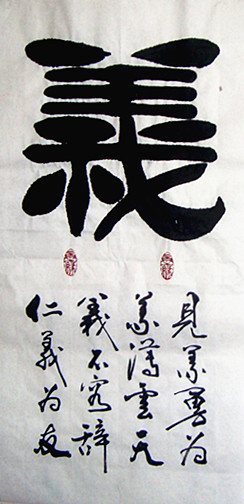 義
見義勇为
義薄雲天
義不容辞
仁義为友